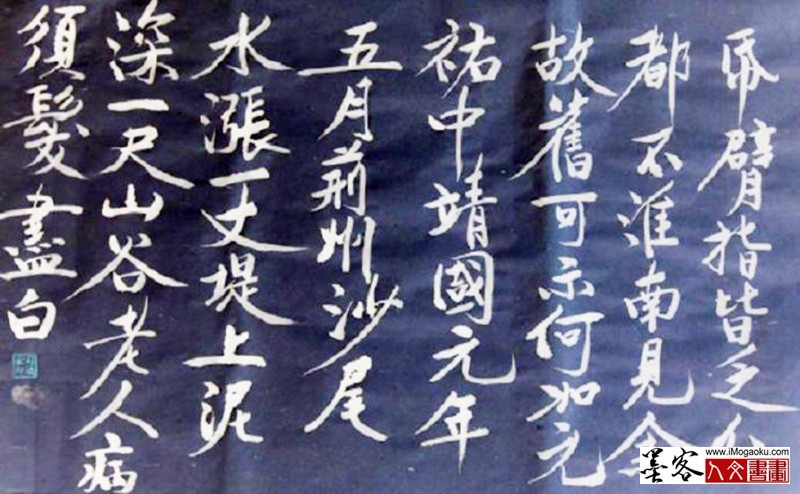 帋臂指皆乏
都不淮南見余
故舊可示何如元
祐中靖國元年
五月荊州沙尾
水漲一丈堤上泥
深一尺山谷老人病
須髮盡白
www.iMogaoku.com
墨客人文書畫